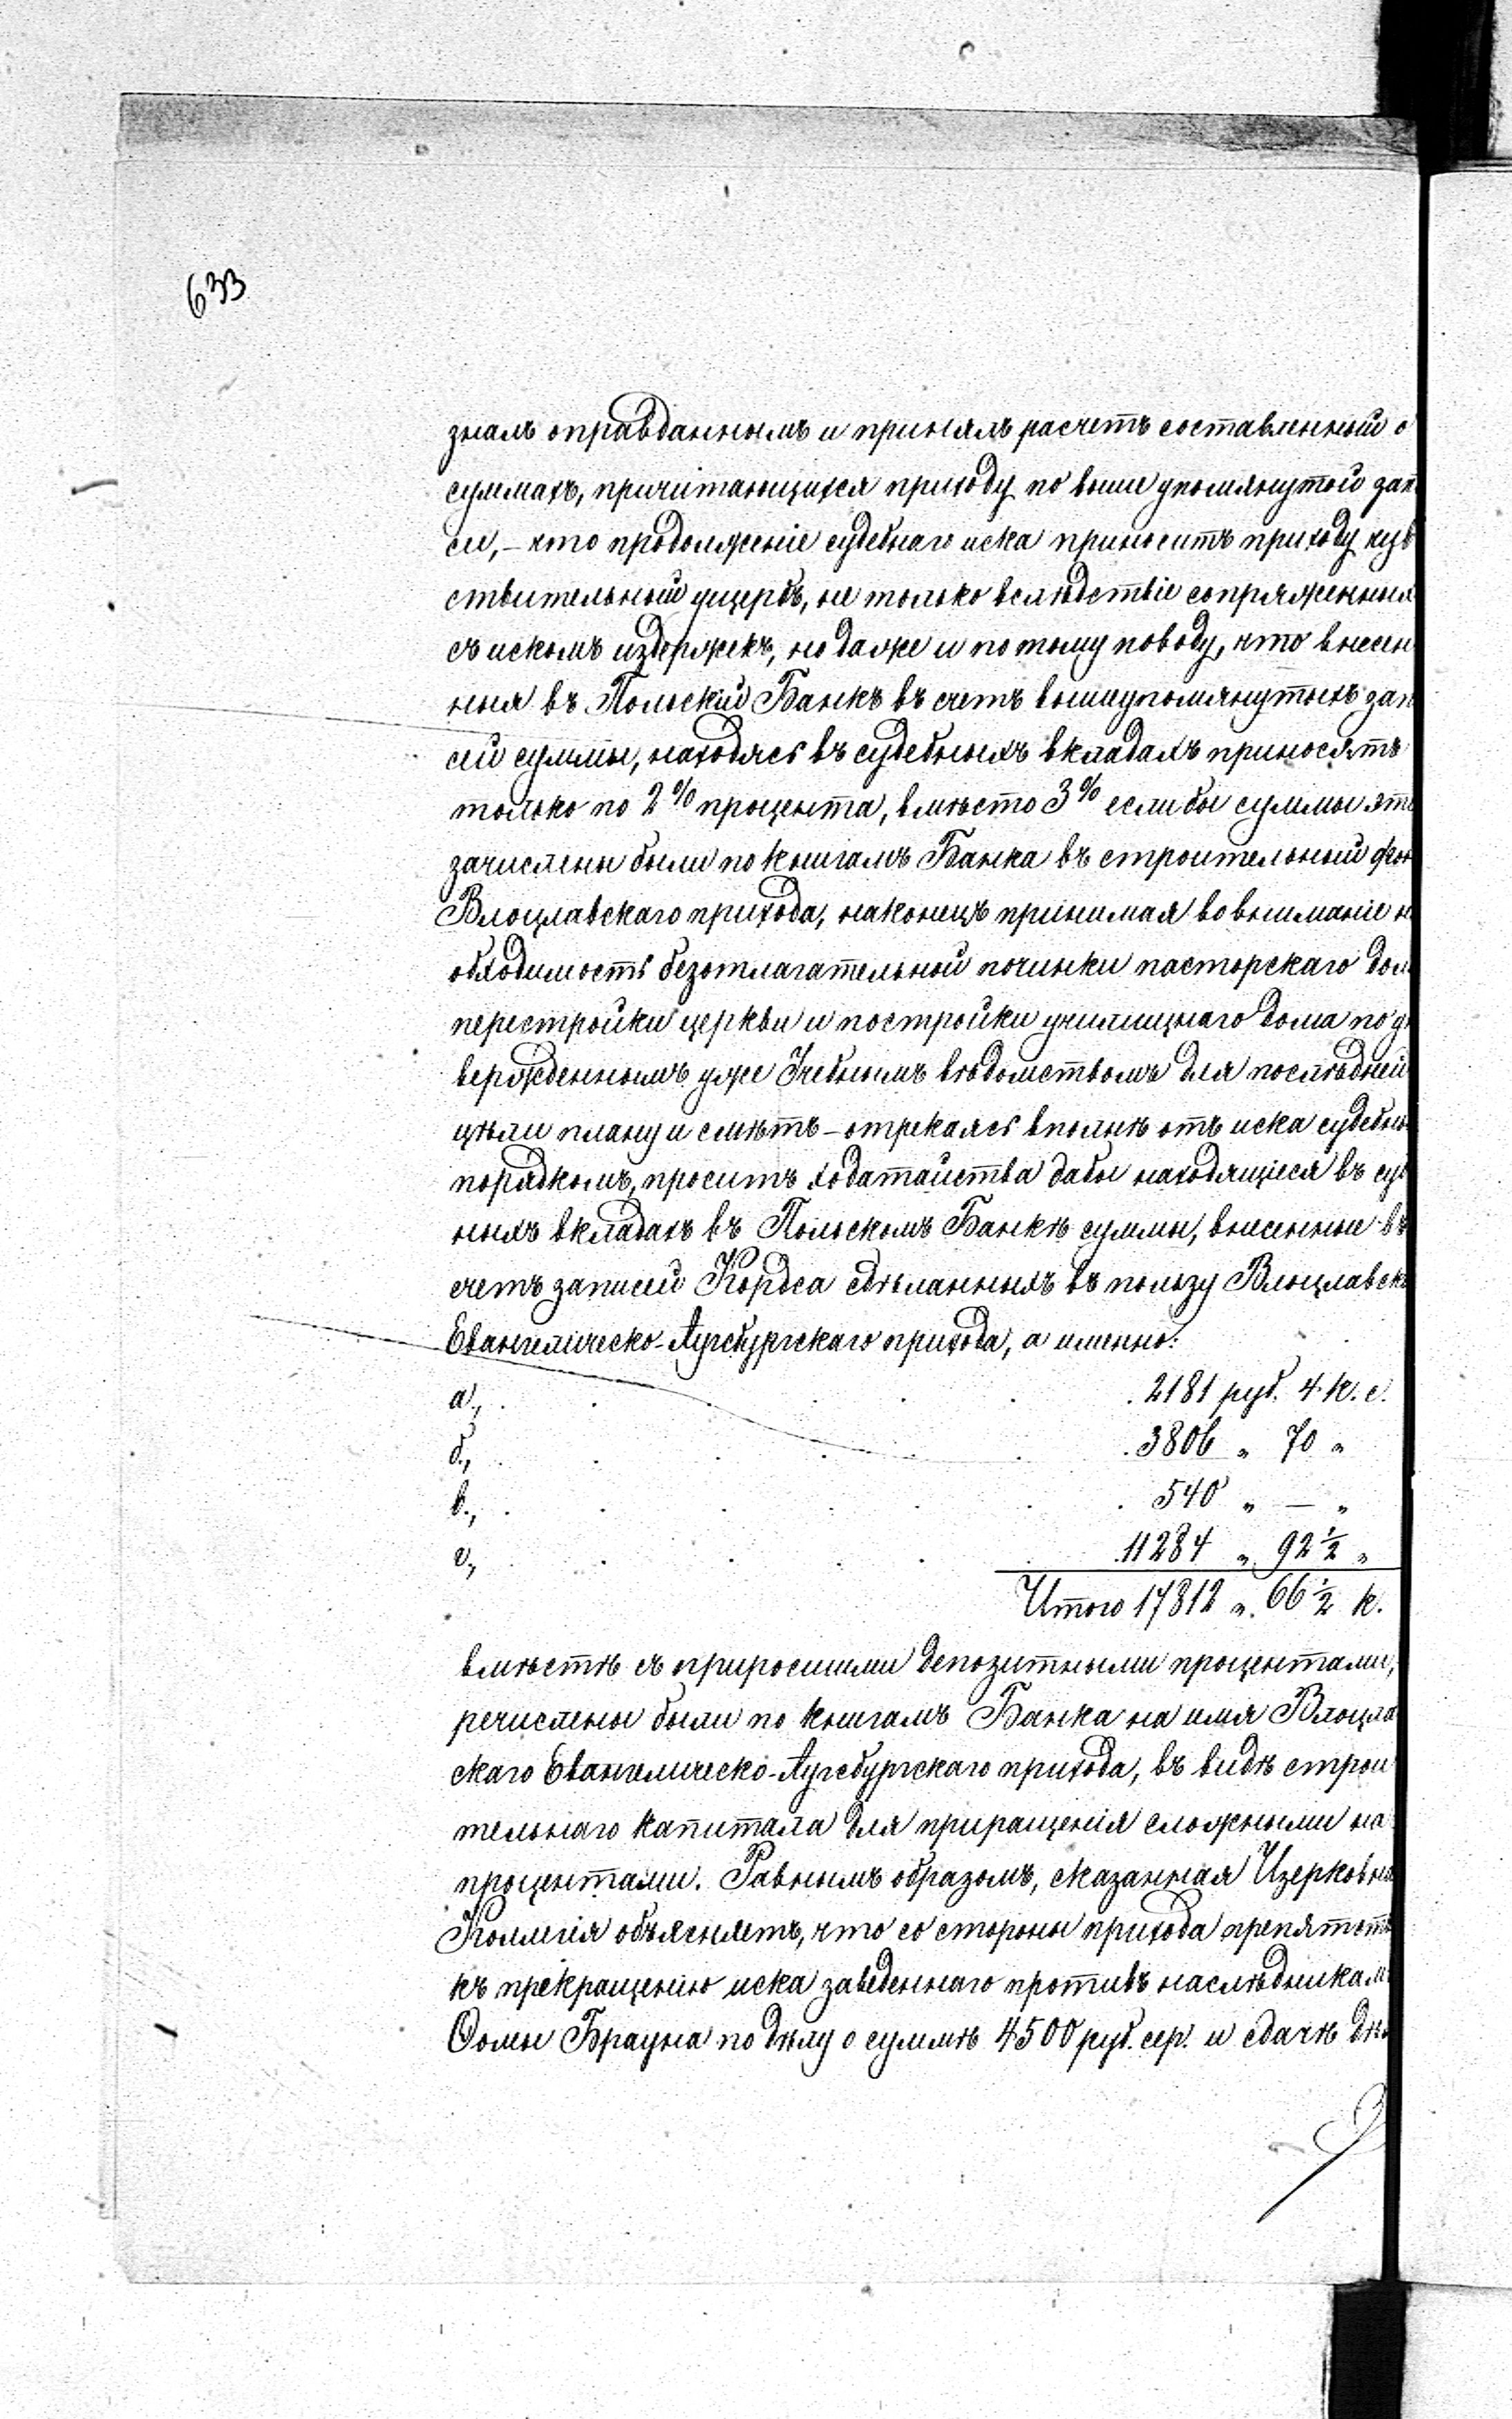 633
зналъ оправданнымъ и принялъ расчетъ составленный о
суммахъ, причитающихся приходу по выше упомянутой зап
си, – что продолженіе судебнаго иска приноситъ приходу чув
ствительный ущербъ, не только вслѣдствіе сопряженныхъ
съ искомъ издержекъ, но даже и по тому поводу, что внесен
ныя въ Польскій Банкъ въ счетъ вышеупомянутыхъ зап
сей суммы, находясь въ судебныхъ вкладахъ приносятъ
только по 2% процента, вмѣсто 3% если бы суммы эти
зачислены были по книгамъ Банка въ строительный фон
Влоцлавскаго прихода, наконецъ принимая во вниманіе н
обходимость безотлагательной починки пасторскаго дом
перестройки церкви и постройки училищнаго дома по ут
вержденнымъ уже Учебнымъ вѣдомствомъ для послѣдней
цѣли плану и смѣтѣ – отрекаясь вполнѣ отъ иска судебны
порядкомъ, проситъ ходатайства дабы находящіеся въ суд
ныхъ вкладахъ въ Польскомъ Банкѣ суммы, внесенные въ
счетъ записей Кордса сдѣланныхъ въ пользу Влоцлавск
Евангелическо-Аугсбургскаго прихода, а именно:
а., . . . . . . 2181 руб. 4 к. с.
б., . . . . . 3806 „ 70 „
в., . . . . . . 540 „ — „
г., . . . . . 11284 „ 92 ½ „
Итого 17812 „ 66 ½ к.
вмѣстѣ съ приросшими депозитными процентами,
речислены были по книгамъ Банка на имя Влоцла
скаго Евангелическо-Аугсбургскаго прихода, въ видѣ строи
тельнаго капитала для приращенія сложными на
процентами. Равнымъ образомъ, сказанная Церковна
Коллегія объясняетъ, что со стороны прихода препятств
къ прекращенію иска заведеннаго противъ наслѣдникам
Ѳомы Брауна по дѣлу о суммѣ 4500 руб. сер. и сдачѣ дѣ